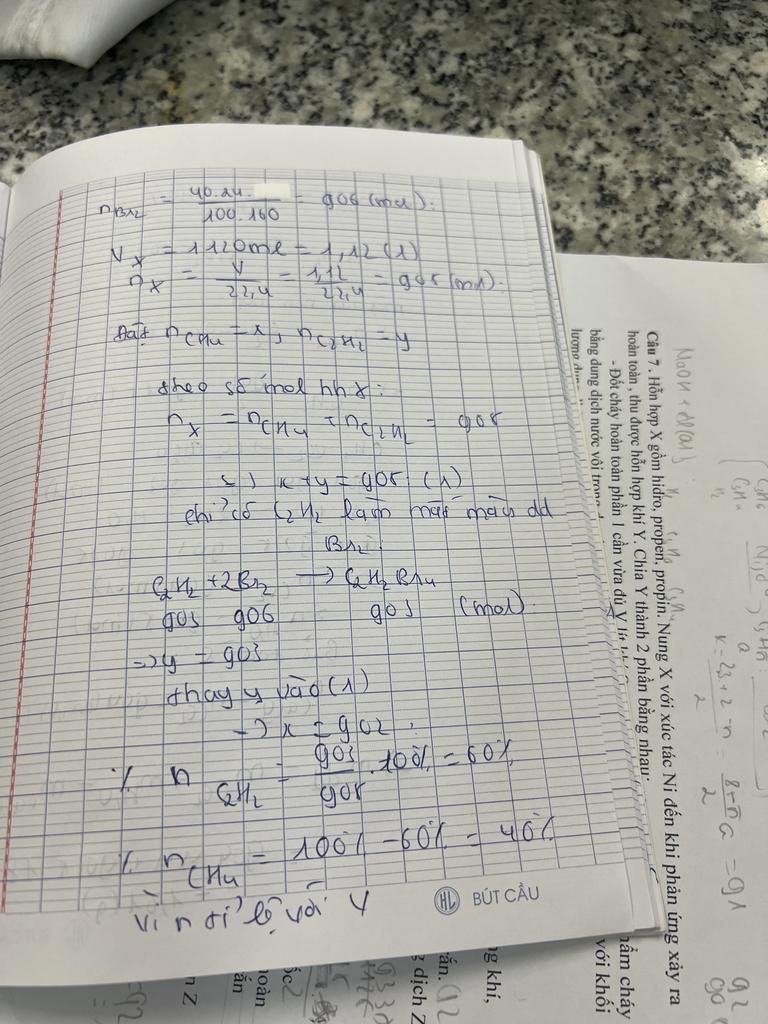 nBr2 = 40.24. / 100.160 = 0,06 (mol).
VX = 1120ml = 1,12 (l)
nX = V / 22,4 = 1,12 / 22,4 = 0,05 (mol).
Đặt nCH4 = x; nC2H2 = y
theo số mol hh X:
nX = nCH4 + nC2H2 = 0,05
x + y = 0,05 (1)
chỉ có C2H2 làm mất màu dd
Br2.
C2H2 + 2Br2 → C2H2Br4
0,03 0,06 0,03 (mol).
=> y = 0,03
thay y vào (1)
→ x = 0,02
% n C2H2 = 0,03 / 0,05 .100% = 60%
% nCH4 = 100% - 60% = 40%
Vì n tỉ lệ với V
HL BÚT CẦU
Câu 7. Hỗn hợp X gồm hidro, propen, propin. Nung X với xúc tác Ni đến khi phản ứng xảy ra
hoàn toàn, thu được hỗn hợp khí Y. Chia Y thành 2 phần bằng nhau:
- Đốt cháy hoàn toàn phần 1 cần vừa đủ V lít
bằng dung dịch nước vôi trong